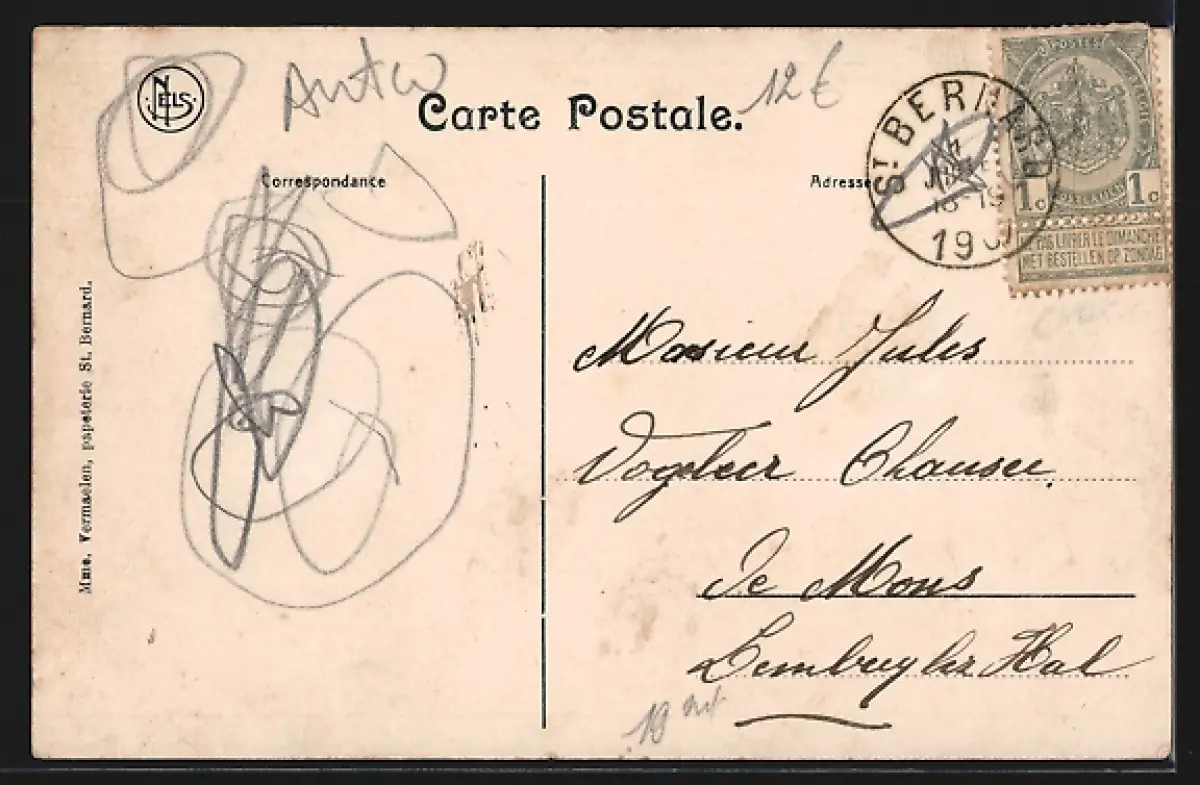 NELS
Antw
Carte Postale.
12 €
Correspondance
Adresse
ST BERNARD
18-19
190
POSTES
1c 1c
NE PAS LIVRER LE DIMANCHE
NIET BESTELLEN OP ZONDAG
Mme. Vermaelen, papeterie St. Bernard.
Monsieur Jules
Vogeleer Chausee.
De Mons
Lembecq lez Hal